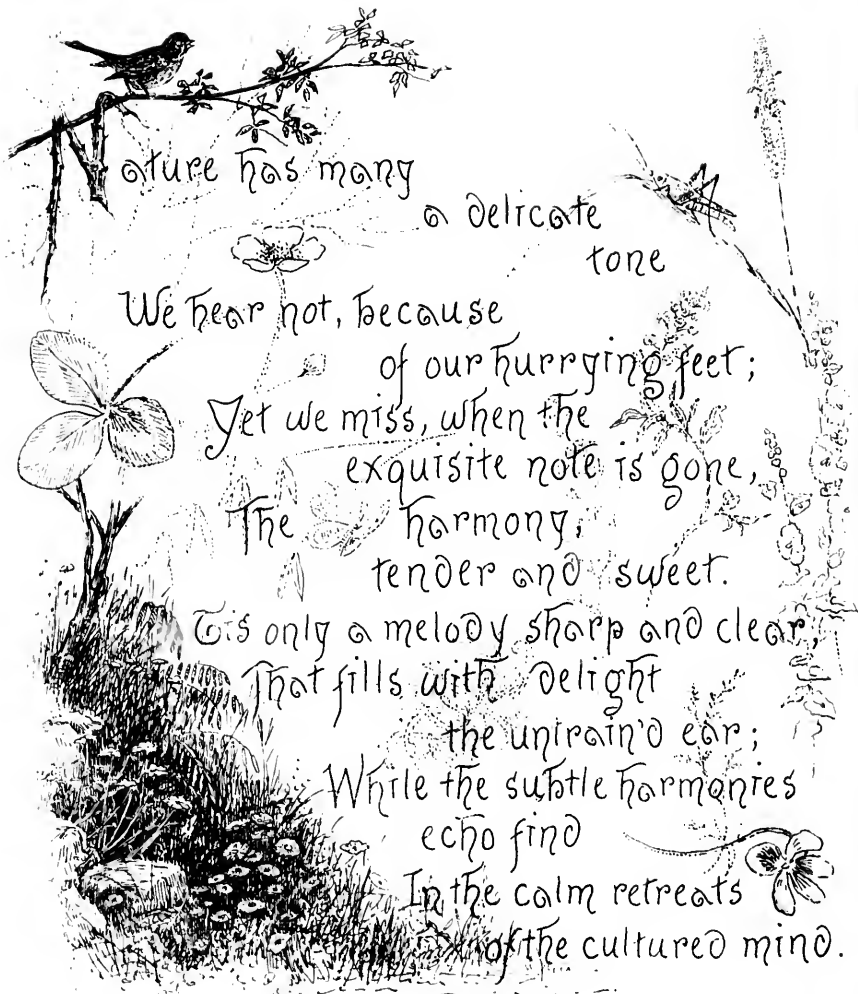 Nature has many
a delicate
tone
We hear not, because
of our hurrying feet;
Yet we miss, when the
exquisite note is gone,
The harmony,
tender and sweet.
Tis only a melody sharp and clear,
That fills with delight
the untrain'd ear;
While the subtle harmonies
echo find
In the calm retreats
of the cultured mind.